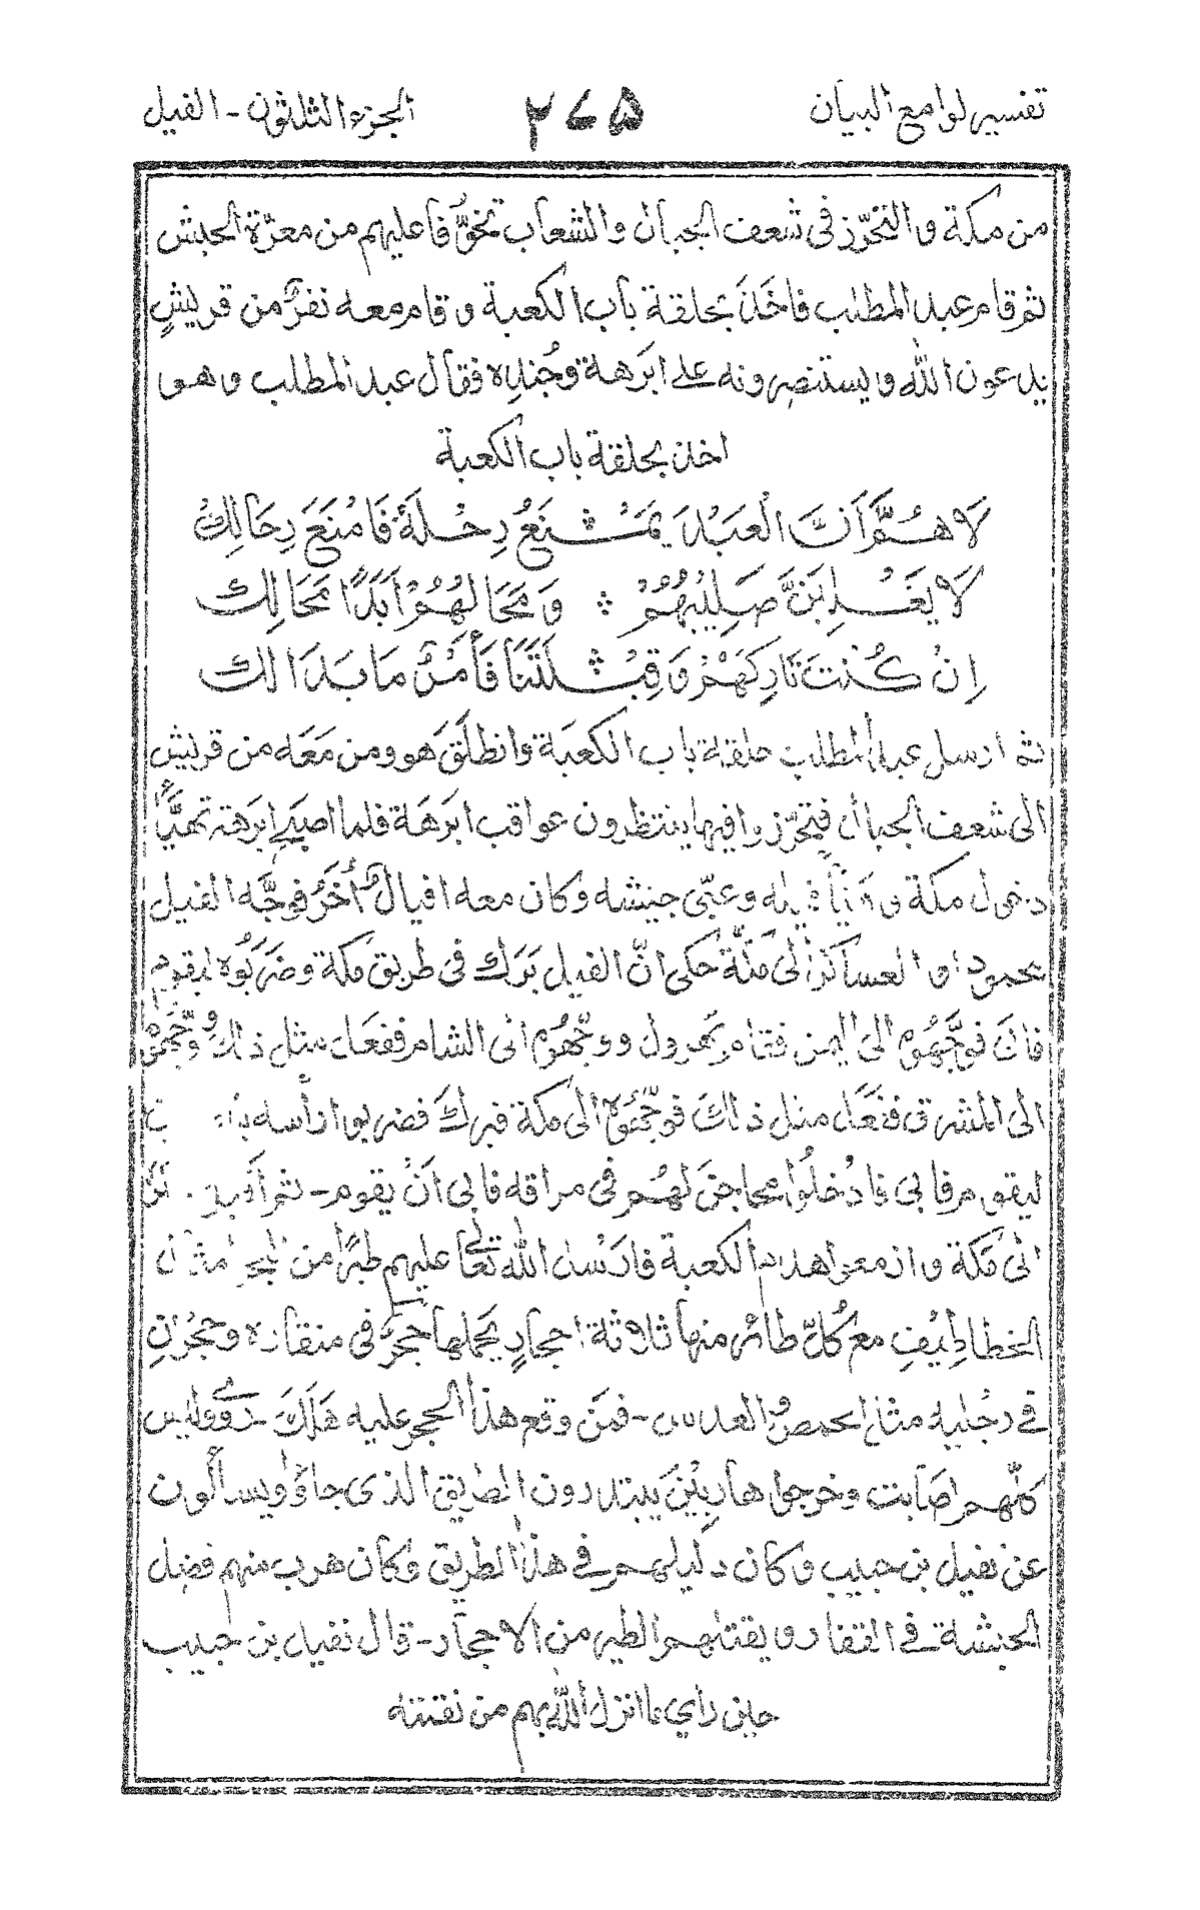 تفسير لوامع البيان ٢٧٥ الجزء الثلثون - الفيل
من مكة والتحرّز في شعف الجبال والشعاب تخوُّفا عليهم من معرّة الحبش
ثم قام عبد المطلب فاخَذَ بحلقة باب الكعبة وقام معه نفرٌ من قريشٍ
يدعون الله ويستنصرونه على ابرَهة وجُندِه فقال عبد المطلب وهو
اخذ بحلقة باب الكعبة
لَاهُمَّ اَنَّ الْعَبْدَ يَمْنَعُ رِحْلَهُ فَامْنَعَ رِحَالِكْ
لَا يَغْلِبَنَّ صَلِيْبُهُمْ ؞ وَمَحَالُهُمْ اَبَدًا مَحَالِكْ
اِنْ كُنْتَ تَارِكَهُمْ وَقِبْلَتَنَا فَأْمُرْ مَا بَدَا لك
ثم ارسل عبد المطلب حلقة باب الكعبة وانطلَقَ هو ومن مَعَه من قريش
الى شعف الجبال فتحرّزوا فيها ينتظرون عواقب ابرَهَة فلما اصبح ابرَهة تهيَّأ
دخول مكة و فيله وعبّى جيشه وكان معه افيالٌ أُخَرُ فوجَّه الفيل
محمودا والعساكرَ الى مكّة حُكى انّ الفيل بَرَك فى طريق مكة وضَرَبُوه ليقوم
فابَى فوجَّهُوه الى اليمن فقام يُهرول ووجّهُوه الى الشام ففعَل مثل ذلك ووجَّهُوه
الى المشرق ففعَل مثل ذلك فوجّهُوه الى مكة فبرك فضربوا رأسه
ليقوم فابى فادْخلُوا محاجنَ لهُم فى مراقه فابى انْ يقوم - ثم
الى مَكة وازمعوا هدم الكعبة فارسَل الله تعالى عليهم طيرًا من البحر امثال
الخطاطِيْفِ مع كُلّ طائر منها ثلاثة احجارٍ يحملها حجرٌ فى منقاره وحجرانِ
في رجْليه مثل الحمص والعدس - فمَن وقع هذا الحجر عليه هَلَكَ - وليس
كلّهم اصَابت وخرجوا هاربِيْنَ يبتدرون الطريق الذى جاؤا ويسألون
عن نفيل بن حبيب وكان دليلهم في هذا الطريق وكان هرب منهم فضل
الحبشة في القفار ويقتلهم الطير من الاحجار - قال نفيل بن حبيب
حين رأي ما انزل الله بهم من نقمته